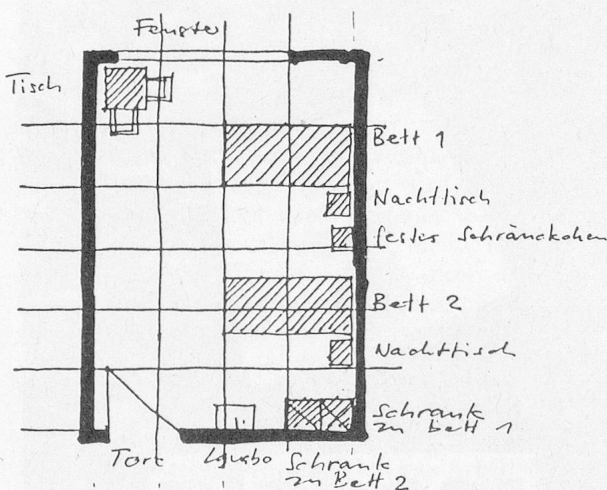 Fenster
Tisch
Bett 1
Nachttisch
festes Schränckchen
Bett 2
Nachttisch
Schrank
zu Bett 1
Schrank
zu Bett 2